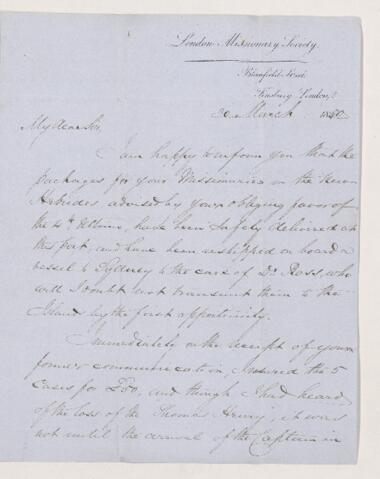 London Missionary Society.
Blomfield Street,
Finsbury London,
30 March 18
My dear Sir,
I am happy to inform you that the
packages for your Missionaries in the New
Hebrides advised by your obliging favor of
the 4th Ultimo, have been safely delivered at
this port and have been reshipped on board a
vessel to Sydney to the care of Dr Ross, who
will I doubt not transmit them to the
Island by the first opportunity.
Immediately on the receipt of your
former communication, I insured the 5
cases for £80, and though I had heard
of the loss of the Thomas Henry, it was
not until the arrival of the Captain in